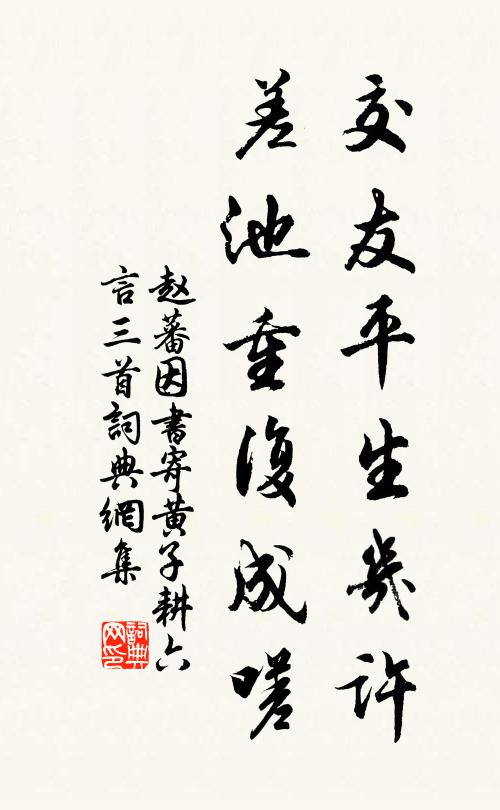 交友平生幾許
差池重復成嗟
赵蕃因書寄黄子耕六
言三首詞典網集
詞典网印